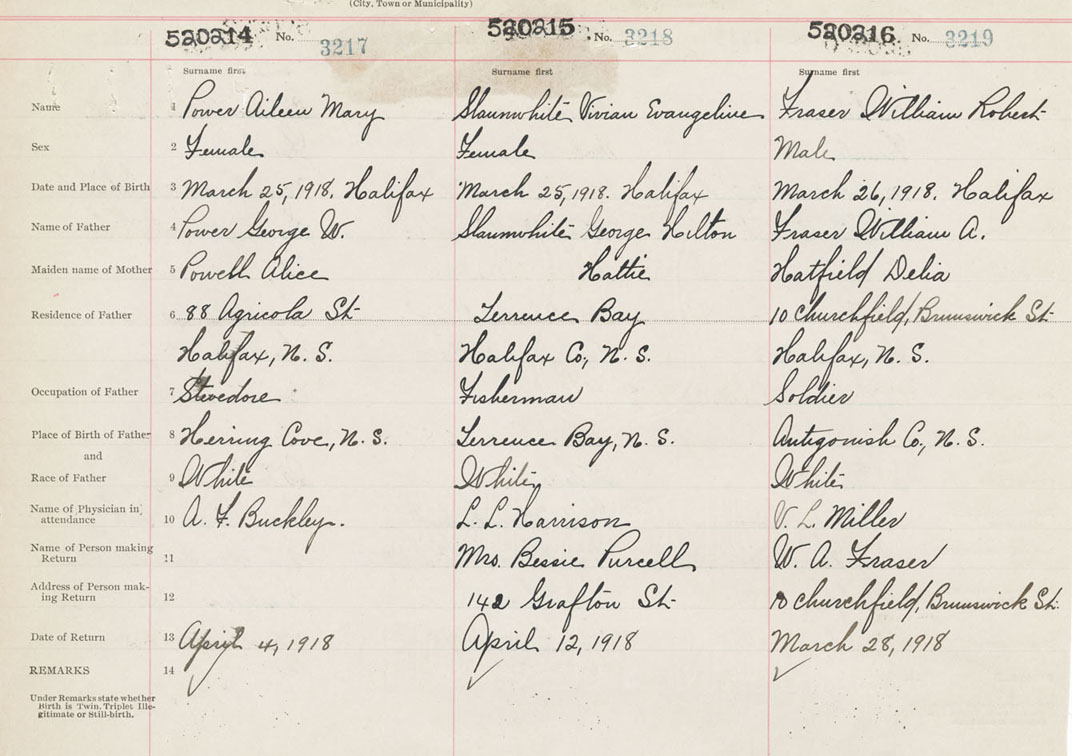 (City, Town or Municipality)
520214 No. 3217 520215 No. 3218 520216 No. 3219
Surname first Surname first Surname first
Name 1 Power Aileen Mary Slaunwhite Vivian Evangeline Fraser William Robert
Sex 2 Female Female Male
Date and Place of Birth 3 March 25, 1918. Halifax March 25, 1918. Halifax March 26, 1918. Halifax
Name of Father 4 Power George W. Slaunwhite George Hilton Fraser William A.
Maiden name of Mother 5 Powell Alice Hattie Hatfield Delia
Residence of Father 6 88 Agricola St. Terrence Bay 10 Churchfield, Brunswick St.
Halifax, N. S. Halifax Co, N. S. Halifax, N. S.
Occupation of Father 7 Stevedore Fisherman Soldier
Place of Birth of Father 8 Herring Cove, N. S. Terrence Bay, N. S. Antigonish Co, N. S.
and
Race of Father 9 White White White
Name of Physician in attendance 10 A. F. Buckley. L. L. Harrison V. L. Miller
Name of Person making Return 11 Mrs. Bessie Purcell W. A. Fraser
Address of Person making Return 12 142 Grafton St. 10 Churchfield, Brunswick St.
Date of Return 13 April 4, 1918 April 12, 1918 March 28, 1918
REMARKS 14
Under Remarks state whether
Birth is Twin, Triplet Ille-
gitimate or Still-birth.